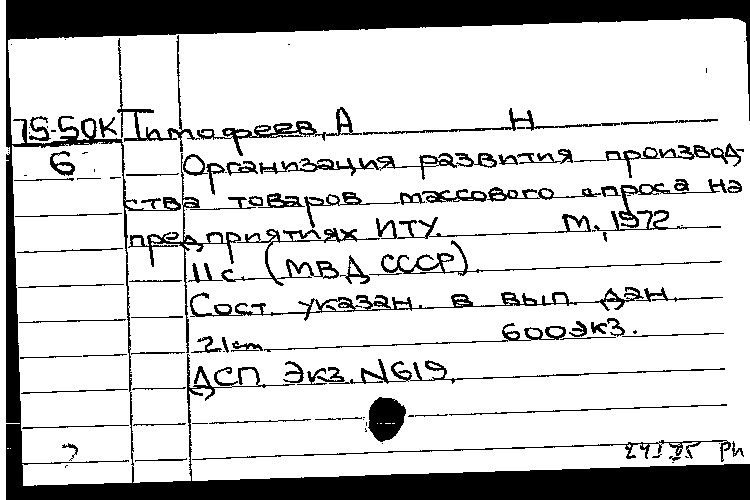 75-50К Тимофеев, А Н
6 Организация развития производ-
ства товаров массового спроса на
предприятиях ИТУ. М., 1972
11с. (МВД СССР).
Сост. указан. в вып. дан.
21см. 600экз.
ДСП. Экз. N619.